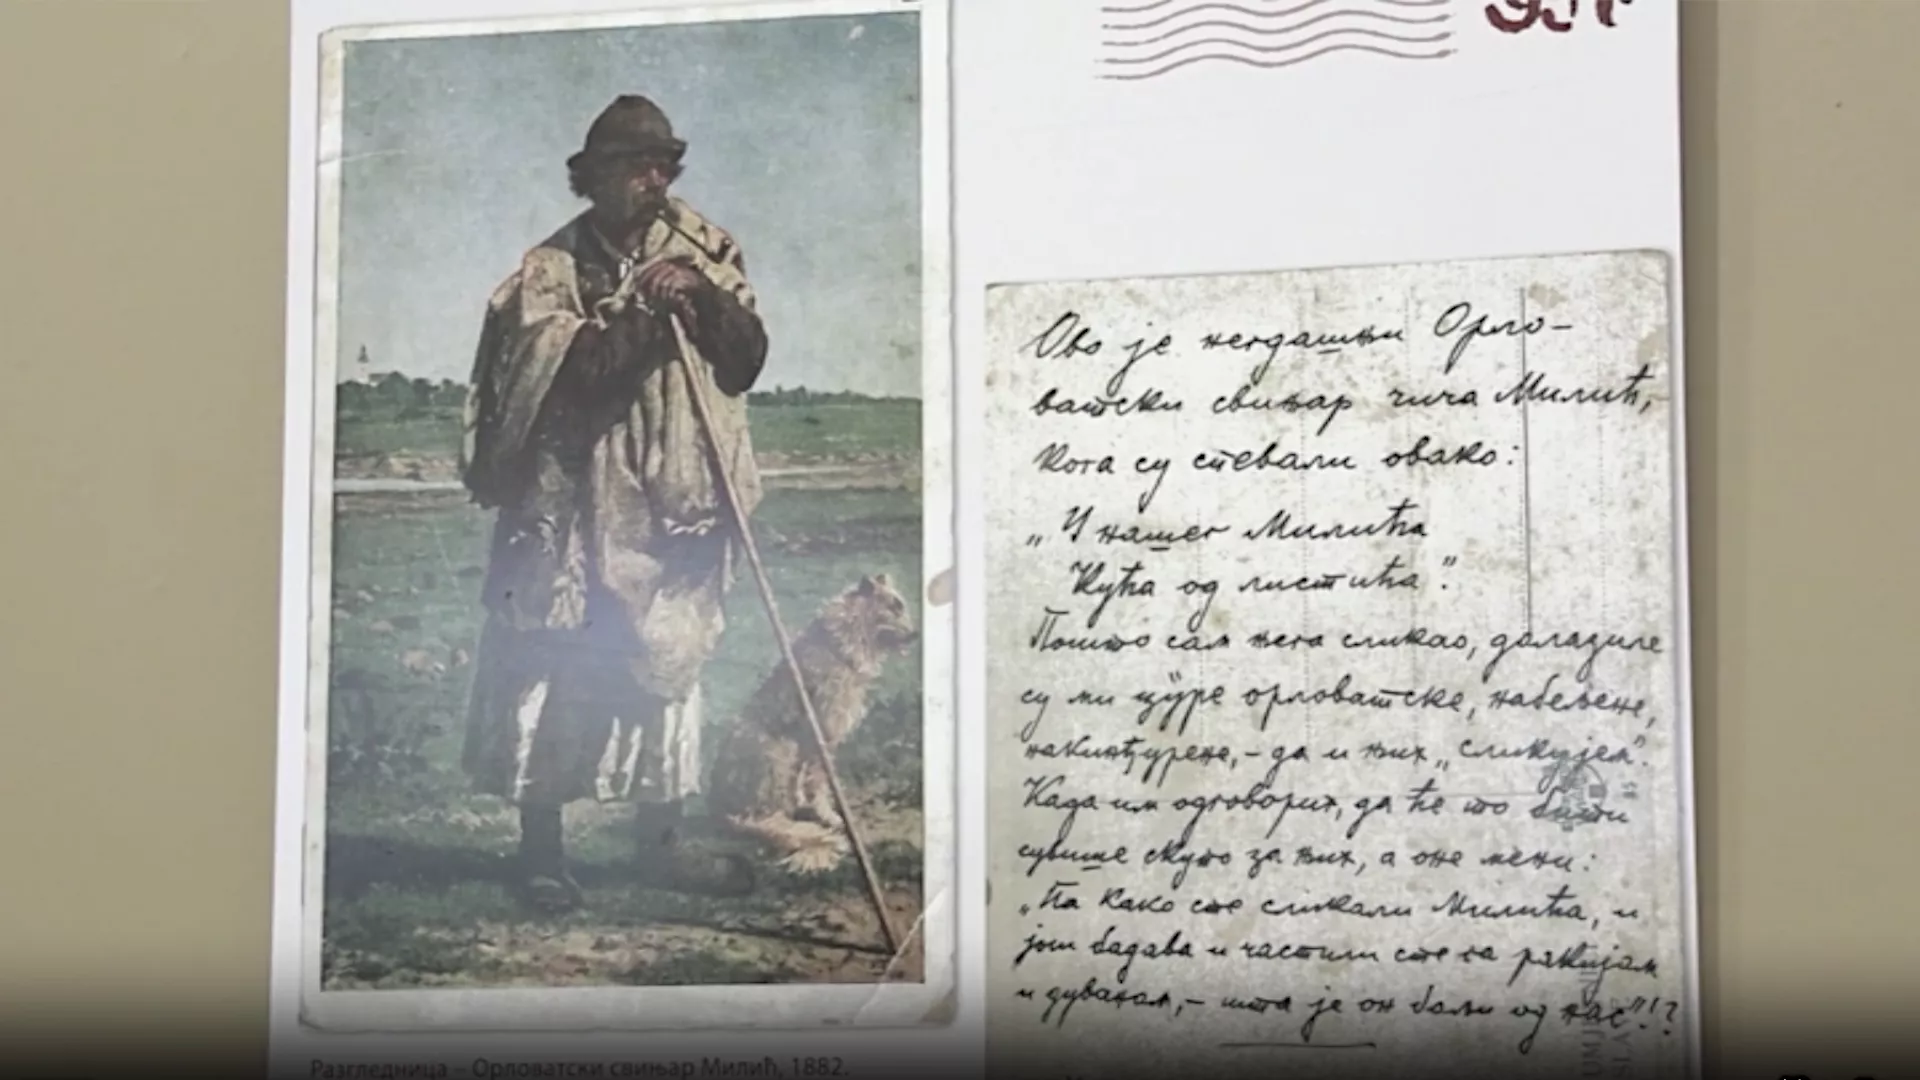 Ово је негдашњи Орло-
ватски свињар чича Милић,
кога су спевали овако:
„У нашег Милића
Кућа од листића".
Пошто сам њега сликао, долазиле
су ми цуре орловатске, набељене,
накинђурене, – да и њих „сликујем".
Када им одговорих, да ће то бити
сувише скупо за њих, а оне мени:
„Па како сте сликали Милића, и
још бадава и частили сте га ракијам
и дуваном, – шта је он бољи од нас"!?
Разгледница – Орловатски свињар Милић, 1882.